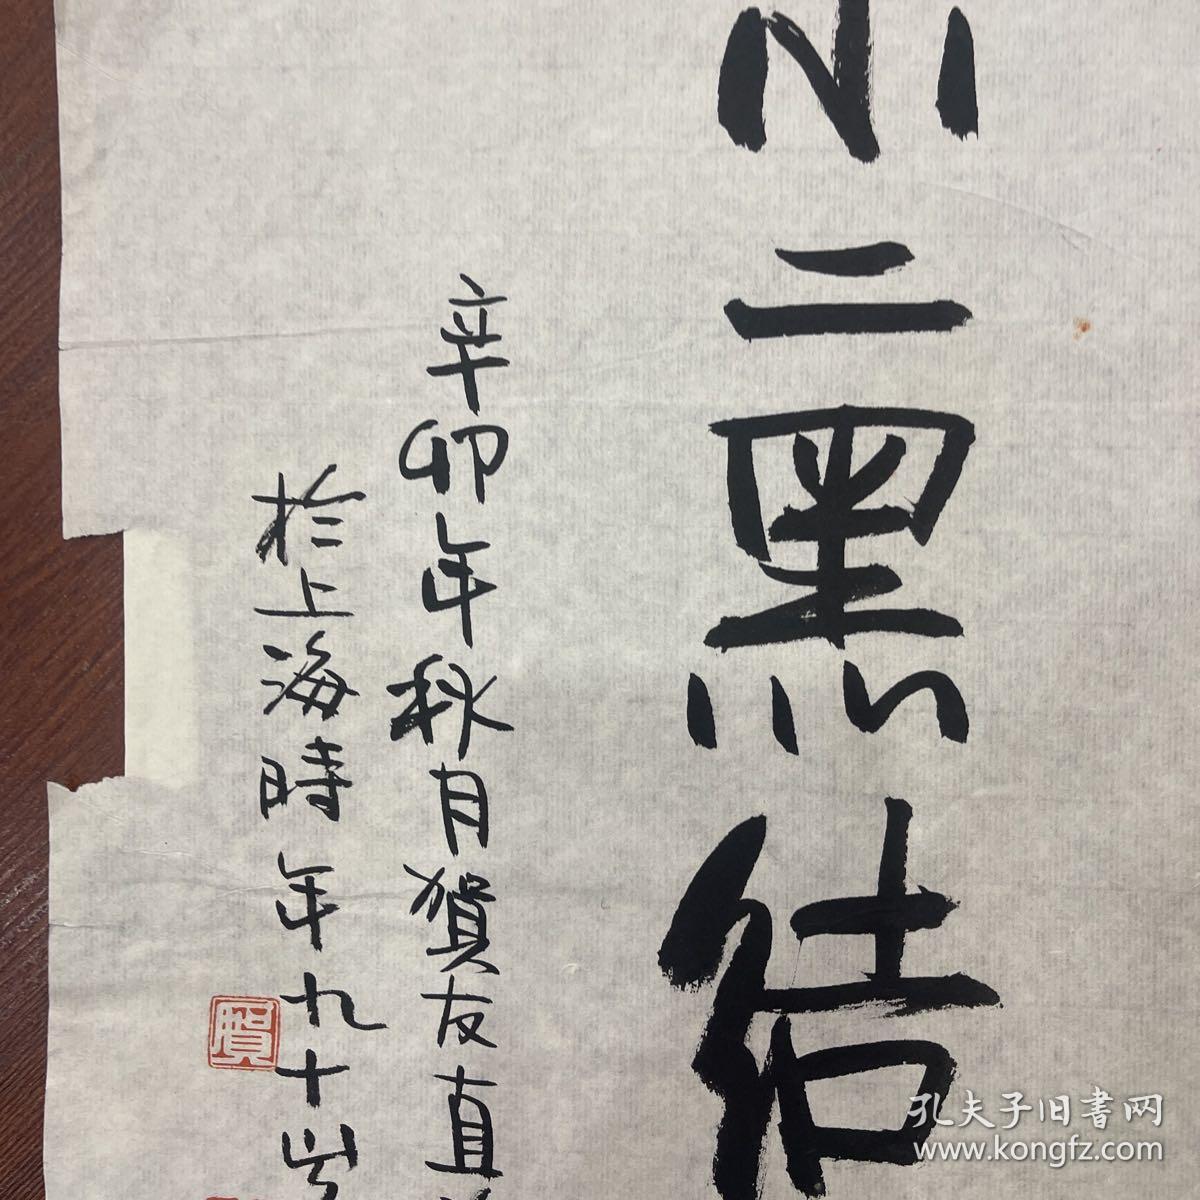 小二黑结
辛卯年秋月贺友直
於上海時年九十岁
賀
孔夫子旧書网
www.kongfz.com